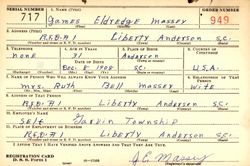 SERIAL NUMBER 1. NAME (Print) ORDER NUMBER
717 James Eldredge Massey 949
2. ADDRESS (Print)
R.F.D.#1 Liberty Anderson S.C.
3. TELEPHONE 4. AGE IN YEARS 5. PLACE OF BIRTH 6. COUNTRY OF CITIZENSHIP
none 31 Anderson
Dec. 8 1908 S.C. U.S.A.
7. NAME OF PERSON WHO WILL ALWAYS KNOW YOUR ADDRESS 8. RELATIONSHIP OF THAT PERSON
Mrs. Ruth Bell Massey Wife
9. ADDRESS OF THAT PERSON
R.F.D.#1 Liberty Anderson S.C.
10. EMPLOYER'S NAME
Self Garvin Township
11. PLACE OF EMPLOYMENT OR BUSINESS
R.F.D.#1 Liberty Anderson S.C.
I AFFIRM THAT I HAVE VERIFIED ABOVE ANSWERS AND THAT THEY ARE TRUE.
REGISTRATION CARD
D. S. S. Form 1
J.E. Massey